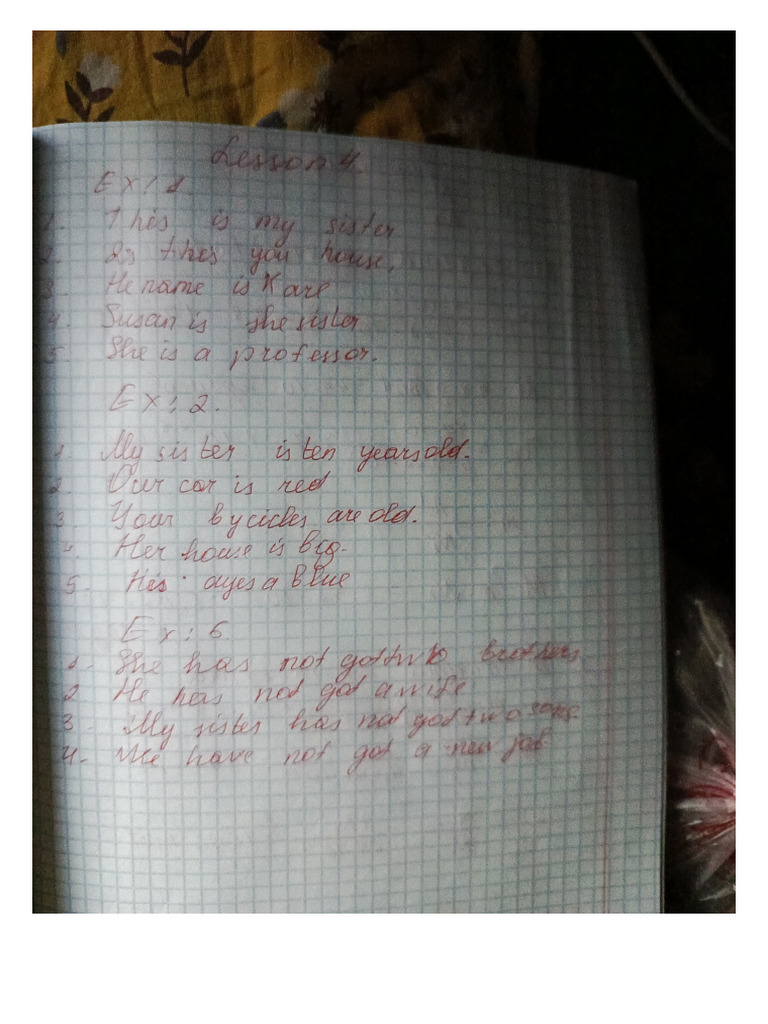 Lesson 4.
Ex: 1
1. This is my sister
2. Is thes you house.
3. He name is Kare
4. Susan is she sister
5. She is a professor.
Ex: 2.
1. My sister is ten years old.
2. Our car is red
3. Your bycicles are old.
4. Her house is big.
5. His ayes a blue
Ex: 6.
1. She has not got two brothers
2 He has not got a wife
3. My sister has not got two sons.
4. We have not got a new job